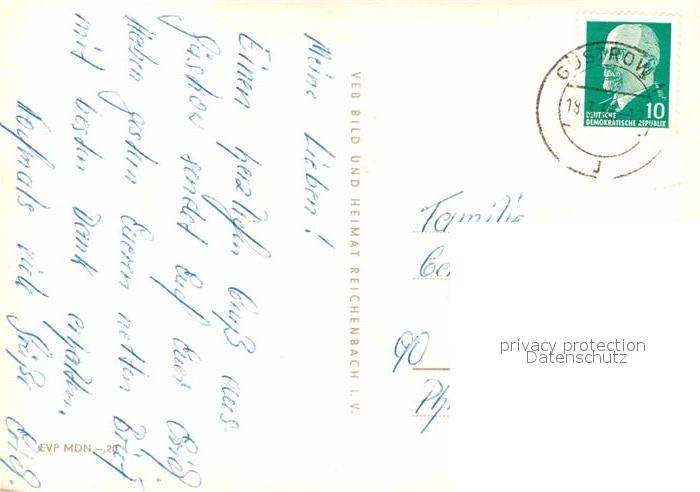 Meine Lieben!
Einen herzlichen Gruß aus
Güstrow sendet Euch Euer Erich.
Haben gestern Eueren netten Brief
mit besten Dank erhalten.
Nochmals viele Grüße Erich.
EVP MDN –,20
VEB BILD UND HEIMAT REICHENBACH I. V.
GÜSTROW
18.7.
J
10
DEUTSCHE
DEMOKRATISCHE REPUBLIK
Familie
90
privacy protection
Datenschutz